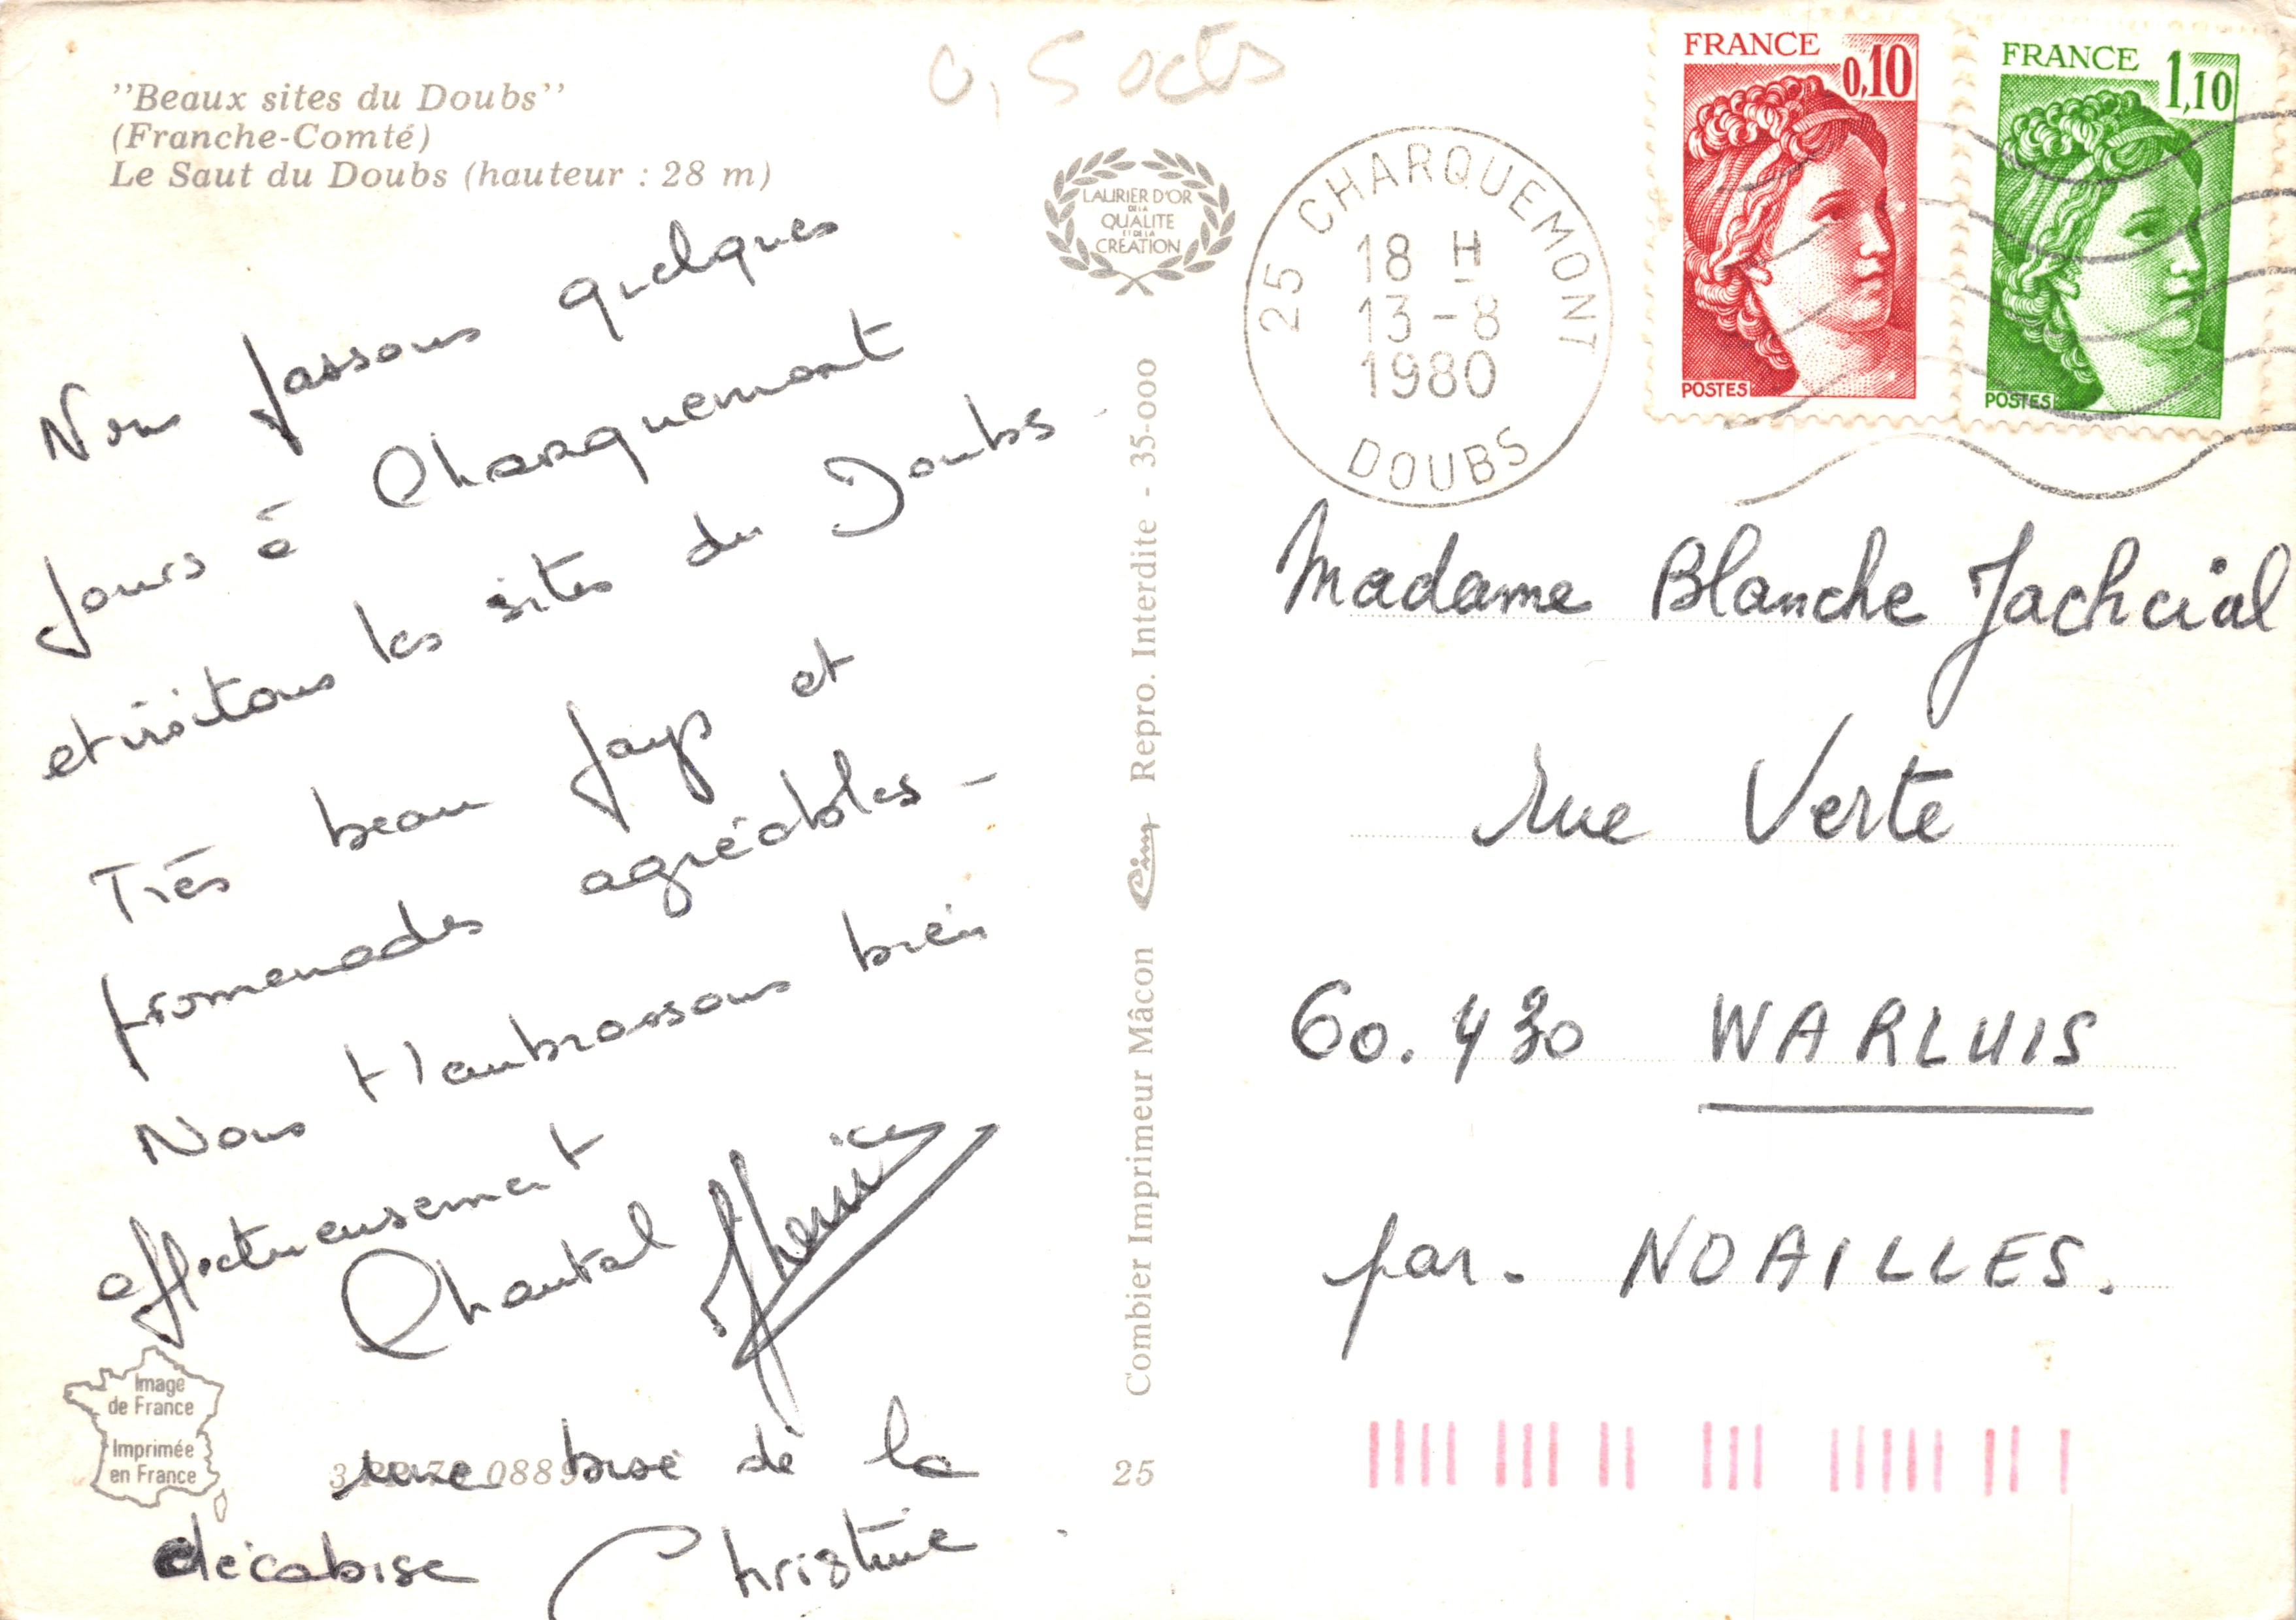 "Beaux sites du Doubs"
(Franche-Comté)
Le Saut du Doubs (hauteur : 28 m)
0,50cts
LAURIER D'OR
DE LA
QUALITE
ET DE LA
CREATION
25 CHARQUEMONT
18 H
13-8
1980
DOUBS
FRANCE 0,10
POSTES
FRANCE 1,10
POSTES
Nous passons quelques
jours à Charquemont
et visitons les sites du Doubs-
Très beau pays et
promenades agréables-
Nous t'embrassons bien
affectueusement
Chantal
une bise de la
Christine
Image
de France
Imprimée
en France
25
Combier Imprimeur Mâcon Cim Repro. Interdite - 35-000
Madame Blanche Jachcial
rue Verte
60.430 WARLUIS
par. NOAILLES.